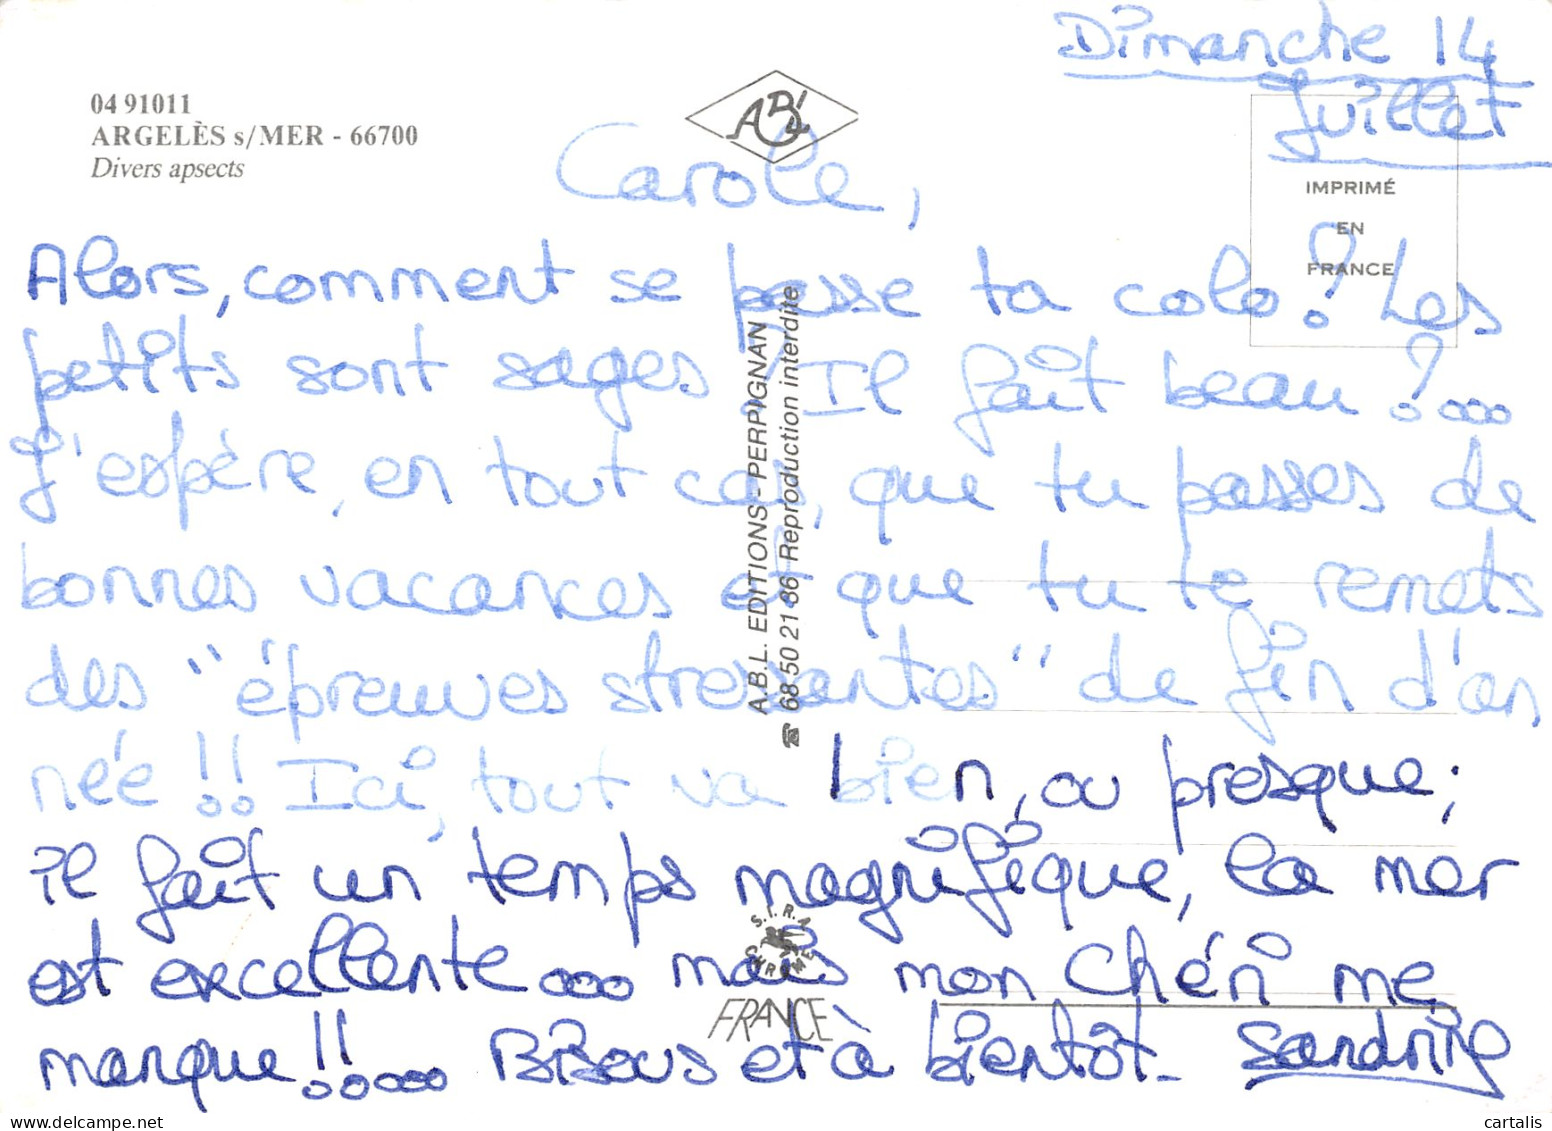 Dimanche 14
Juillet
04 91011
ARGELÈS s/MER - 66700
Divers apsects
ABL
IMPRIMÉ
EN
FRANCE
Carole,
Alors, comment se passe ta colo? Les
petits sont sages? Il fait beau?...
J'espère, en tout cas, que tu passes de
bonnes vacances et que tu te remets
des "épreuves stressantes" de fin d'an
née!! Ici, tout va bien, ou presque;
il fait un temps magnifique, la mer
est excellente... mais mon chéri me
manque!!.... Bisous et à bientôt_ Sandrine
A.B.L. EDITIONS - PERPIGNAN
☎ 68 50 21 86 Reproduction interdite
S.I.R.A
CHROME
FRANCE
cartalis